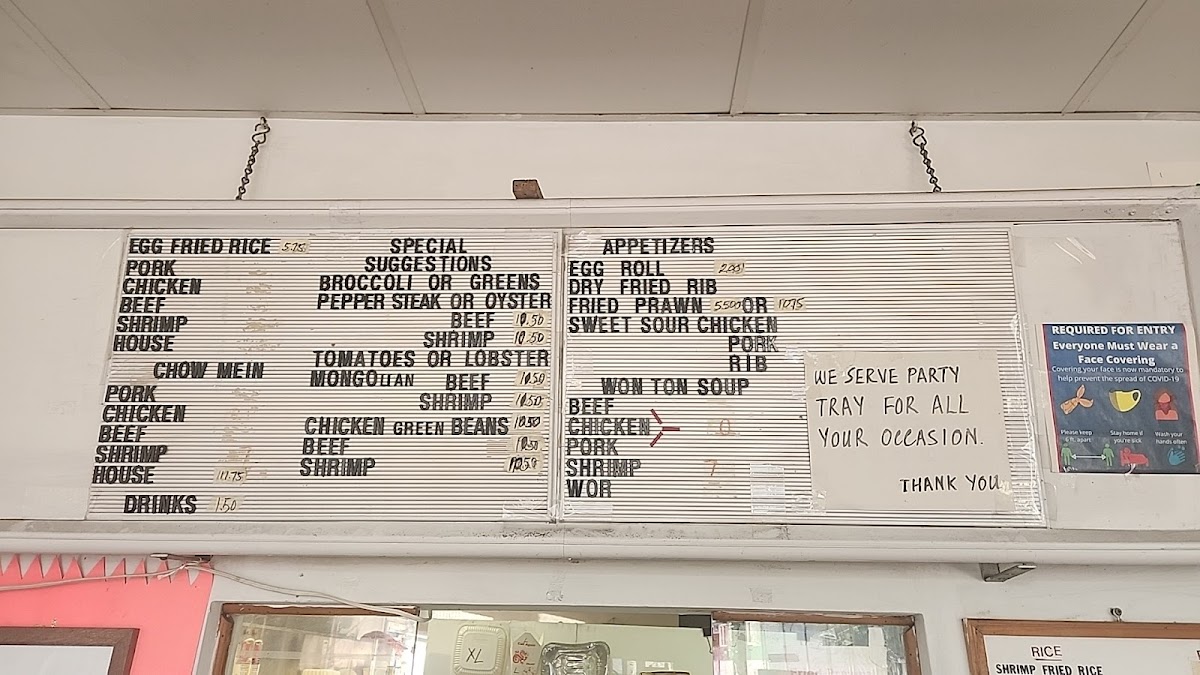 EGG FRIED RICE 5.75
PORK
CHICKEN
BEEF
SHRIMP
HOUSE
CHOW MEIN
PORK
CHICKEN
BEEF
SHRIMP
HOUSE 11.75
DRINKS 1.50
SPECIAL
SUGGESTIONS
BROCCOLI OR GREENS
PEPPER STEAK OR OYSTER
BEEF 10.50
SHRIMP 10.50
TOMATOES OR LOBSTER
MONGOLIAN BEEF 10.50
SHRIMP 10.50
CHICKEN GREEN BEANS 10.50
BEEF 10.50
SHRIMP 10.50
APPETIZERS
EGG ROLL 2.00
DRY FRIED RIB
FRIED PRAWN OR 10.75
SWEET SOUR CHICKEN
PORK
RIB
WON TON SOUP
BEEF
CHICKEN
PORK
SHRIMP 7
WOR
WE SERVE PARTY
TRAY FOR ALL
YOUR OCCASION.
THANK YOU
REQUIRED FOR ENTRY
Everyone Must Wear a
Face Covering
Covering your face is now mandatory to
help prevent the spread of COVID-19
Please keep
6 ft. apart
Stay home if
you're sick
Wash your
hands often
XL
RICE
SHRIMP FRIED RICE